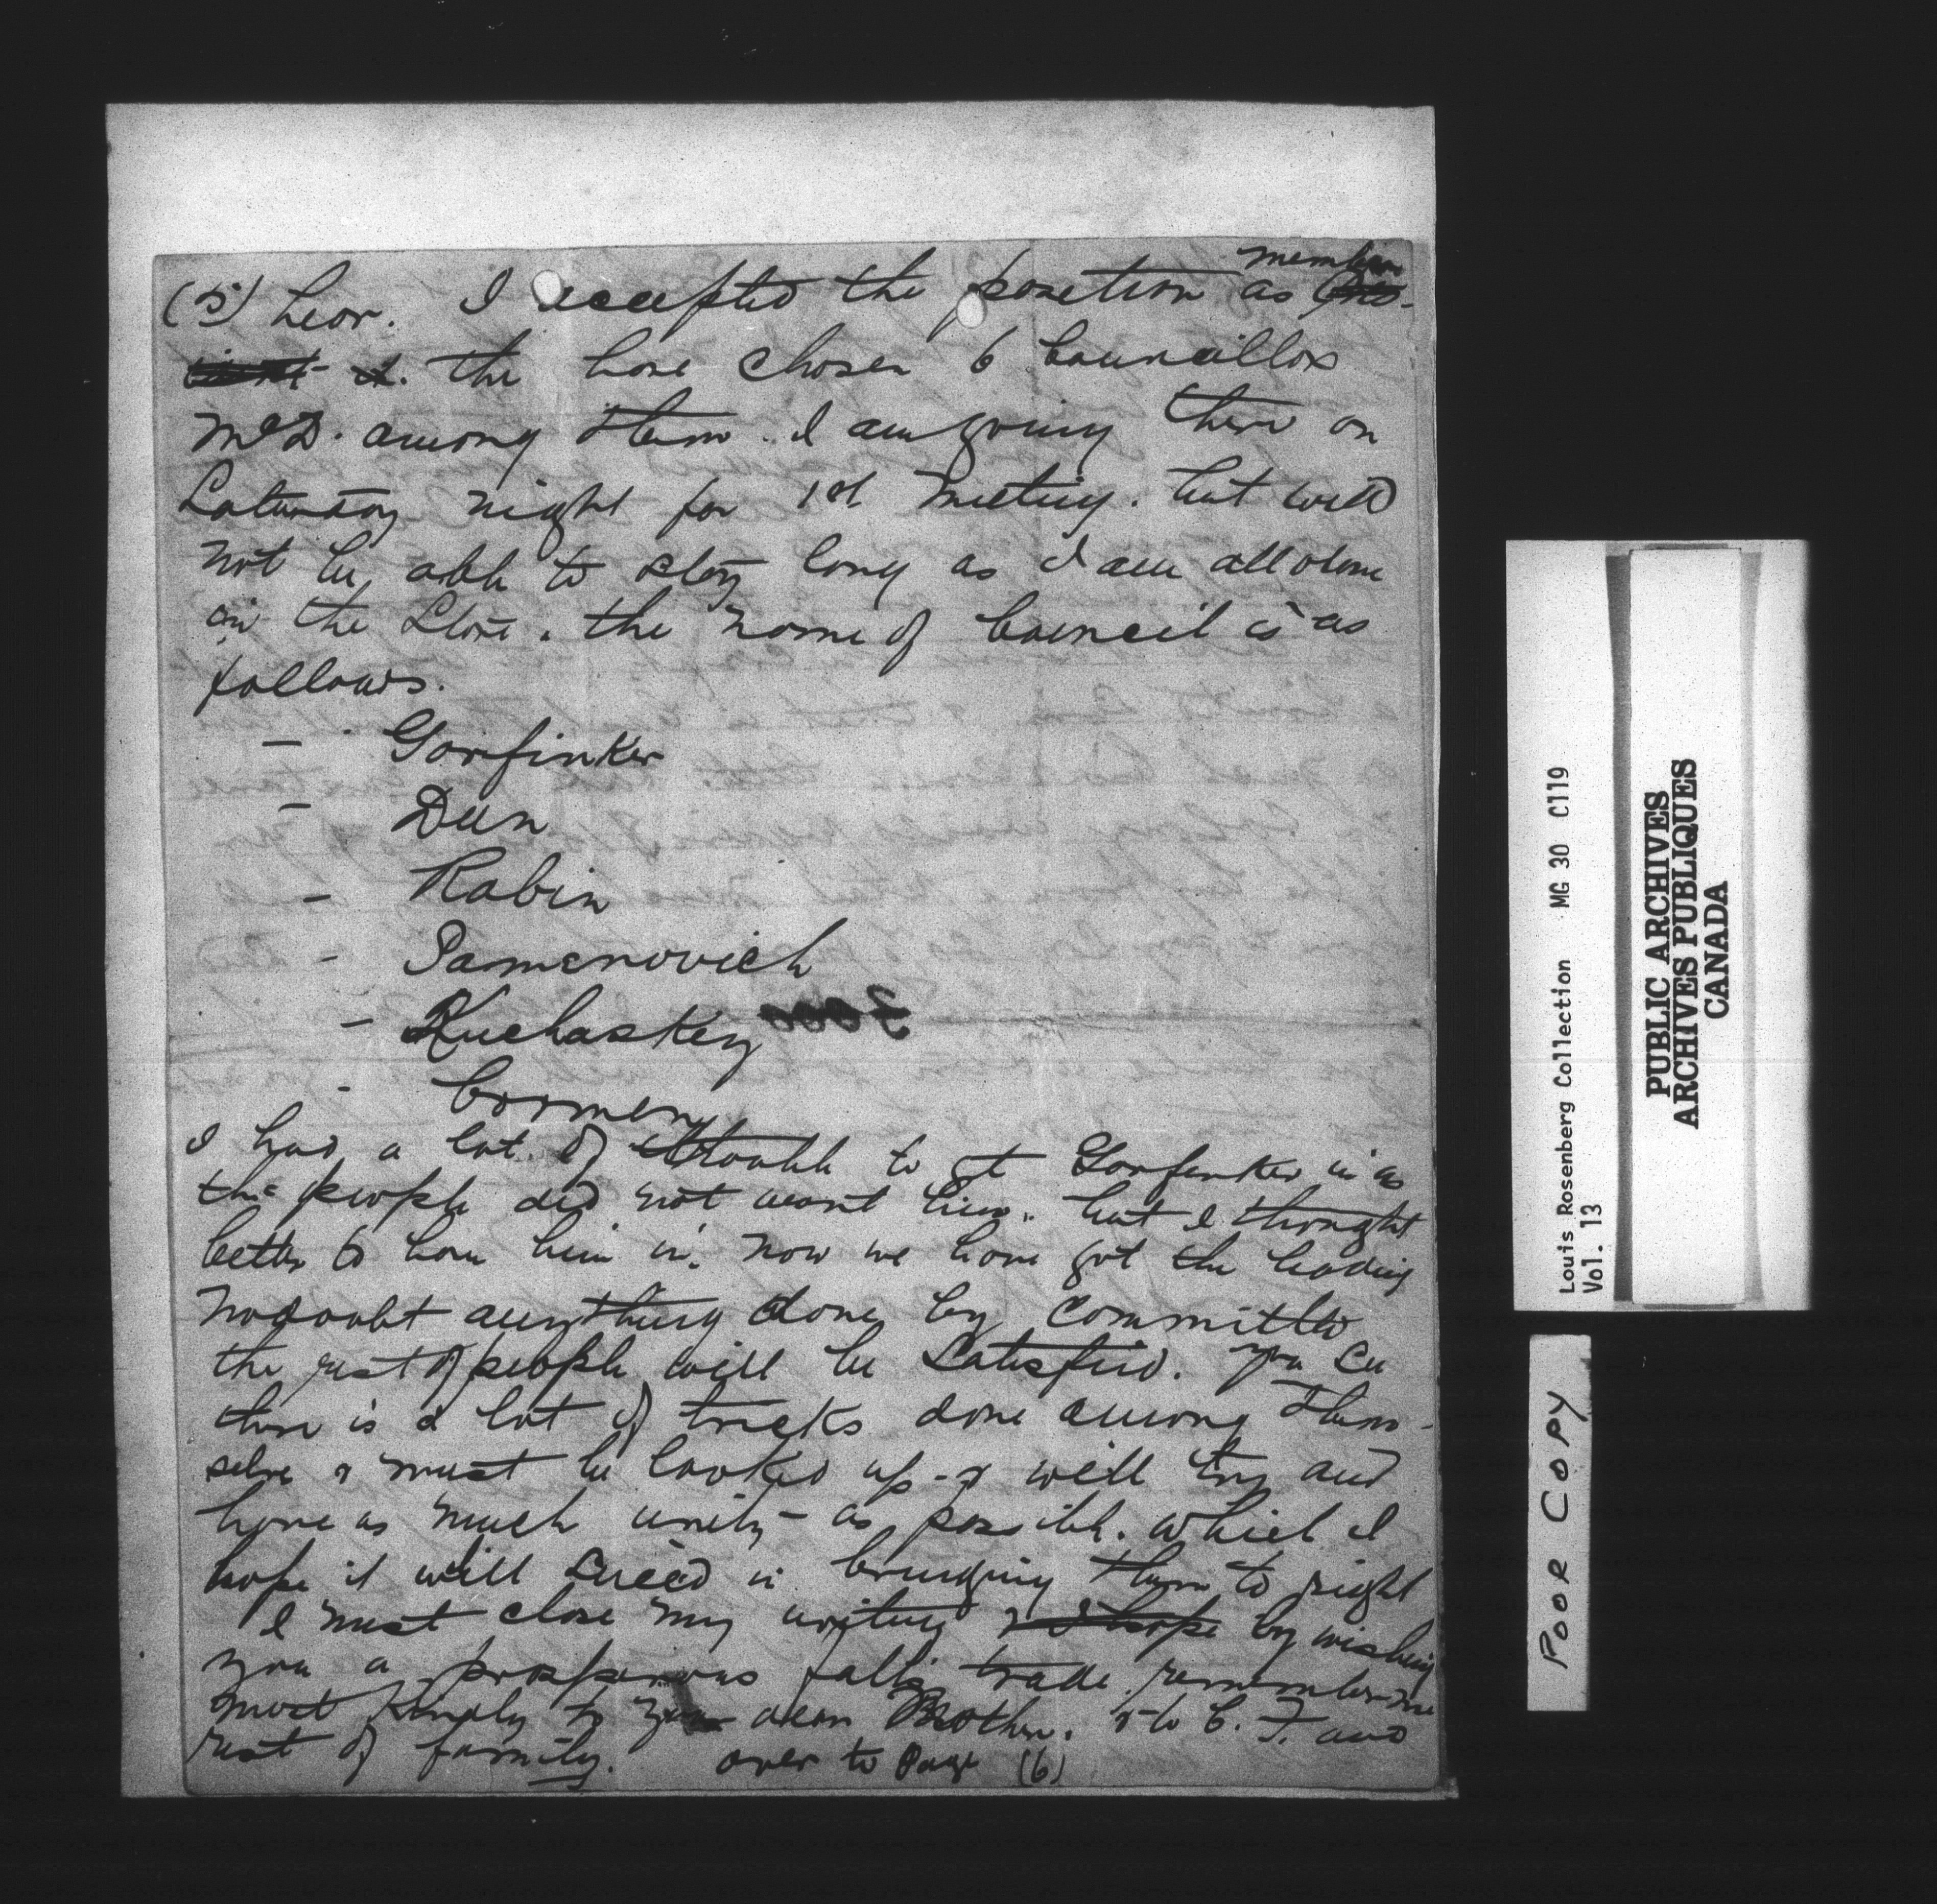 (5) hear. I accepted the position as member
the have chosen 6 Councillors
McD. among them. I am going there on
Saturday night for 1st Meeting. but will
not be able to stay long as I am all alone
in the Store. the name of Council is as
follows.
- Gorfinker
- Dun
- Rabin
- Samenovich
- Kuchaskey
- Cormen
I had a lot of trouble to get Gorfinker in as
the people did not want him. but I thought
better to have him in. now we have got the leading
no doubt anything done by Committee
the rest of people will be Satisfied. you See
there is a lot of tricks done among them-
selve & must be looked up - & will try and
have as much unity - as possible. which I
hope it will Succed in bringing them to right
I must close my writing & I hope by wishing
you a prosperous falls trade. remember me
most kindly to your dear Mother. & to C. F. and
rest of family. over to Page (6)
Louis Rosenberg Collection MG 30 C119
Vol. 13
PUBLIC ARCHIVES
ARCHIVES PUBLIQUES
CANADA
POOR COPY